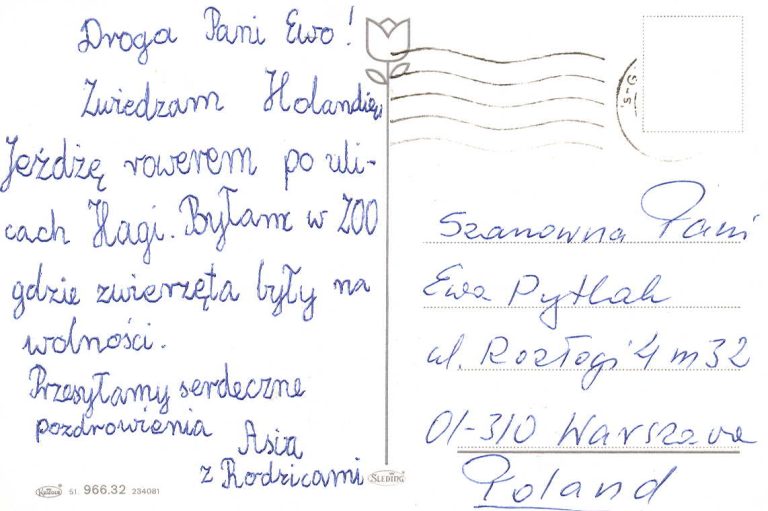 Droga Pani Ewo!
Zwiedzam Holandię.
Jeżdżę rowerem po uli-
cach Hagi. Byłam w ZOO
gdzie zwierzęta były na
wolności.
Przesyłamy serdeczne
pozdrowienia
Asia
z Rodzicami
Szanowna Pani
Ewa Pytlak
ul. Rozłogi 4 m 32
01-310 Warszawa
Poland
51 966.32 234081
SLEDING